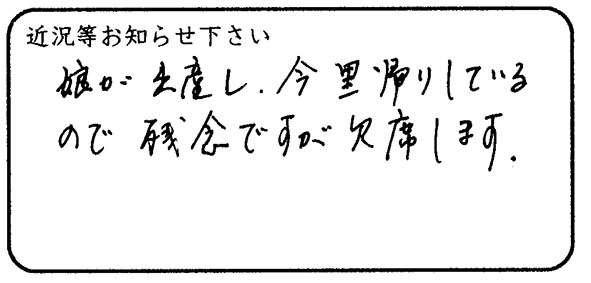 近況等お知らせ下さい
娘が出産し、今里帰りしている
ので残念ですが欠席します.